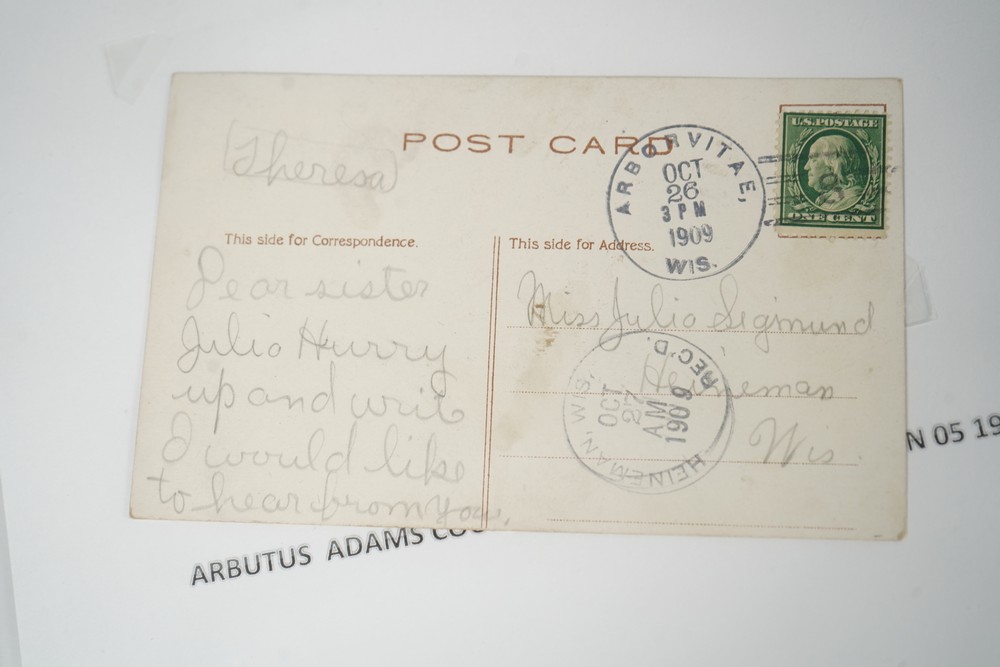 (Theresa)
POST CARD
ARBORVITAE,
OCT
26
3 PM
1909
WIS.
U.S. POSTAGE
ONE CENT
This side for Correspondence.
This side for Address.
Dear sister
Julia Hurry
up and write
I would like
to hear from you.
Miss Julia Segmund
Heineman
Wis.
HEINEMAN, WIS.
OCT
27
AM
1909
REC'D.
ARBUTUS ADAMS
N 05 19